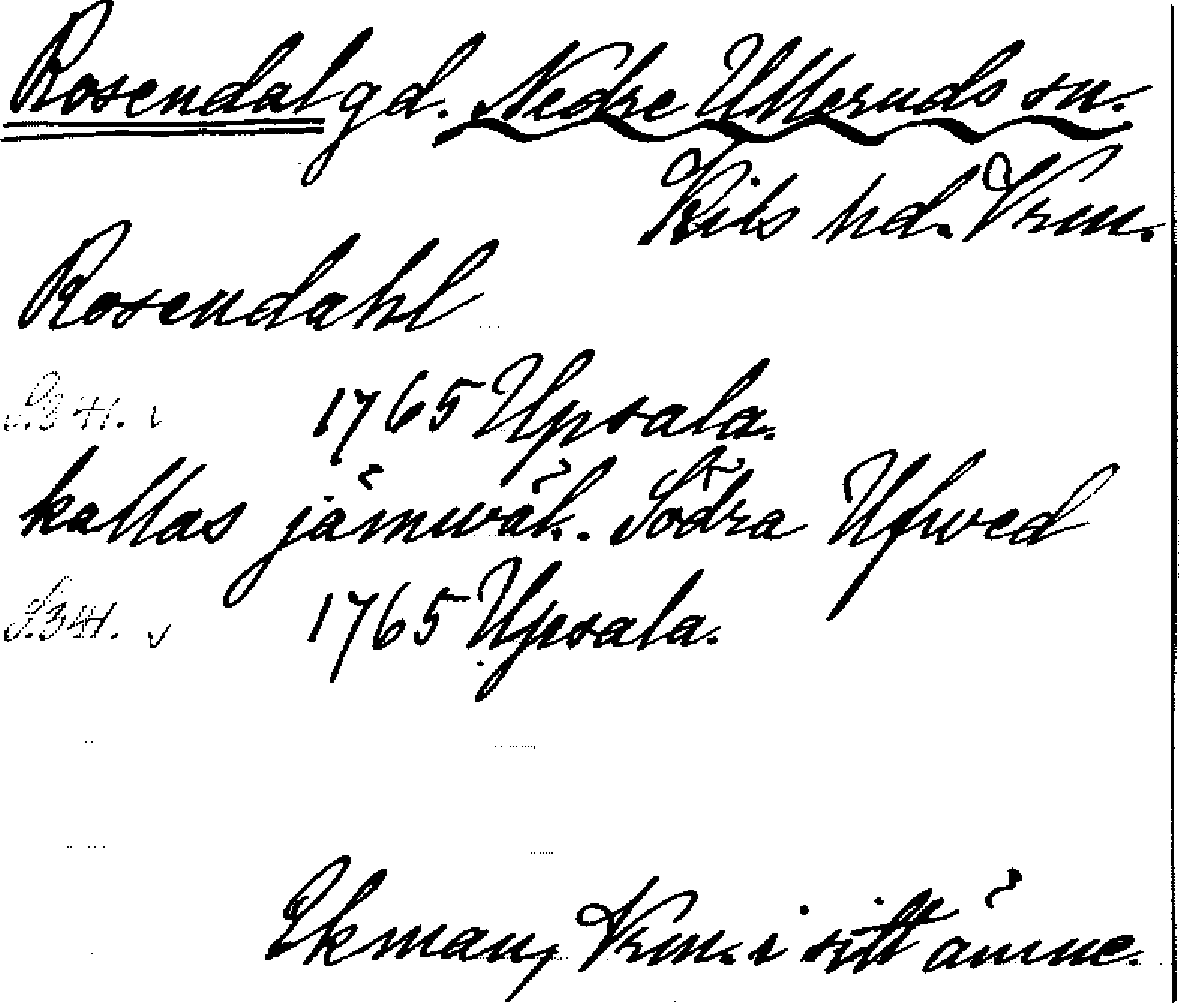 Rosendal gd. Nedre Ulleruds sn.
Kils hd. Vrm.
Rosendahl
S.341. v 1765 Upsala.
kallas jämwäl. Södra Ufwed
S.341. v 1765 Upsala.
Ekman, Vrm. i sitt ämne.